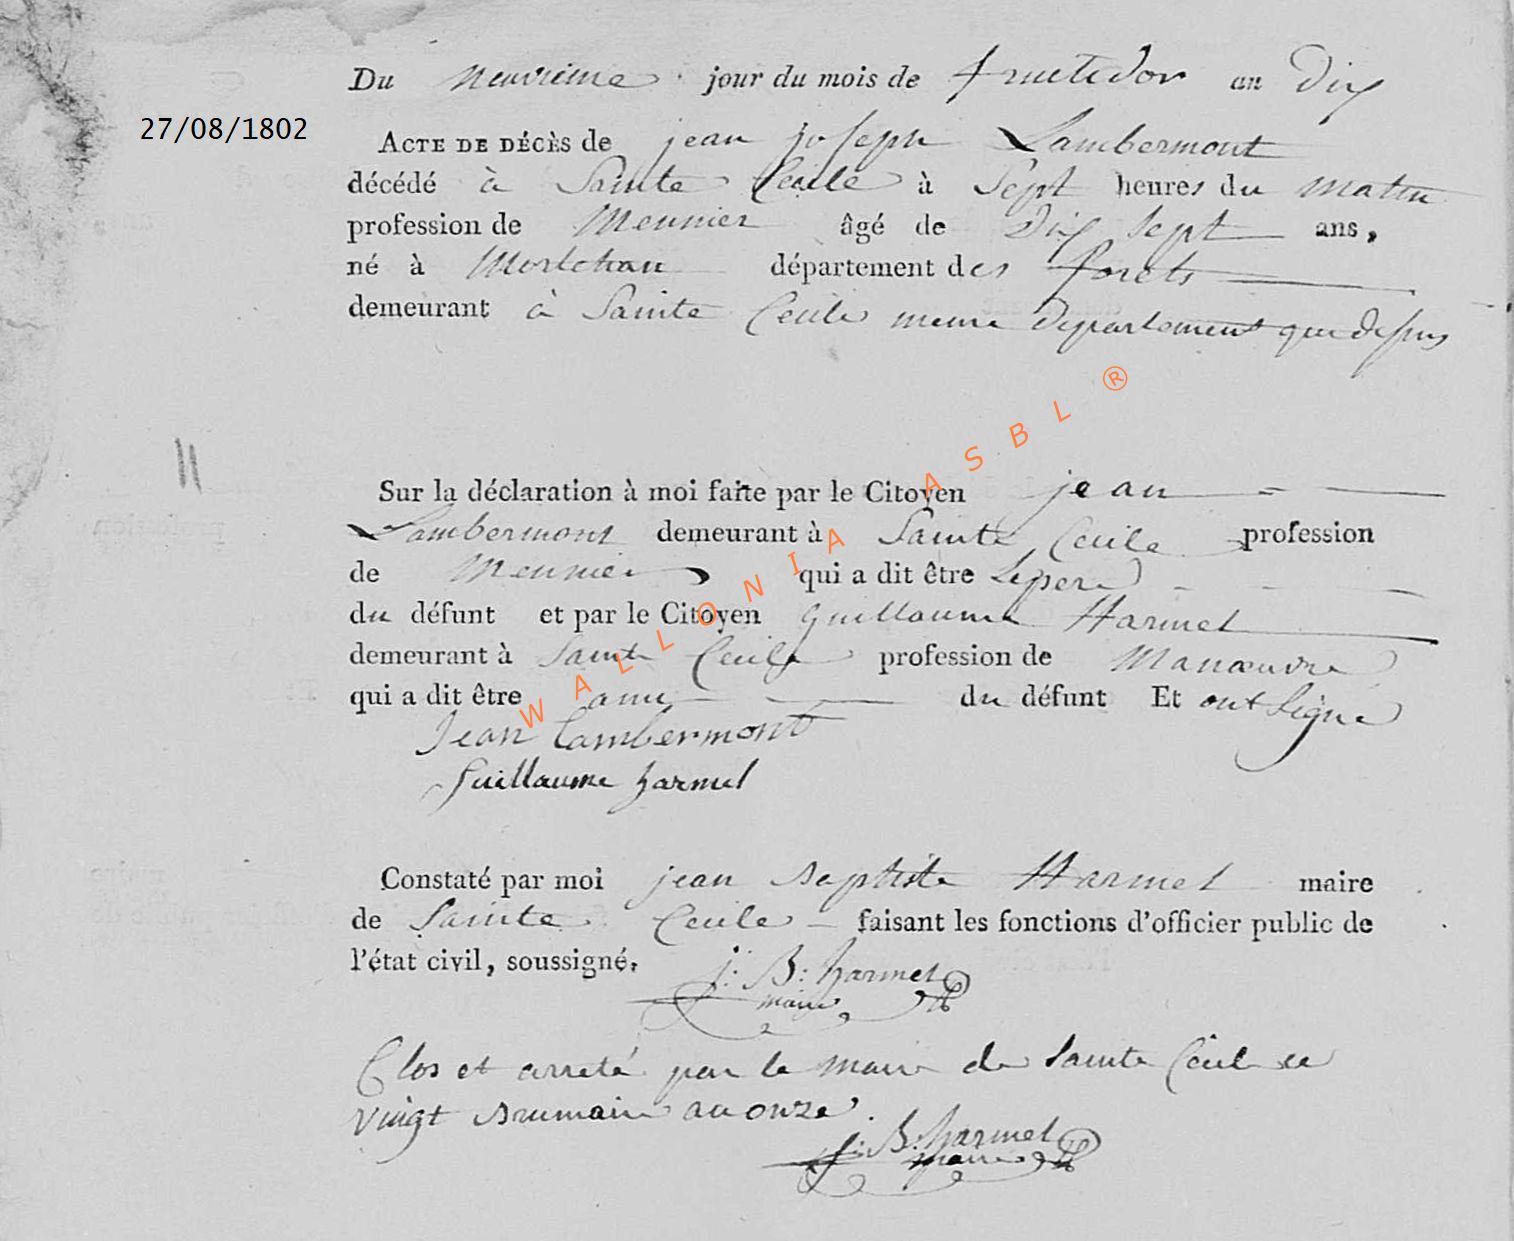 Du neuvieme jour du mois de fructidor an dix
27/08/1802
ACTE DE DÉCÈS de jean joseph Lambermont
décédé à Sainte Cecile à Sept heures du matin
profession de Meunier âgé de dix sept ans,
né à département des forets
demeurant à Sainte Cecile meme departement que dessus
11
Sur la déclaration à moi faite par le Citoyen jean
Lambermont demeurant à Sainte Cecile profession
de Meunier qui a dit être le pere
du défunt et par le Citoyen guillaume Harmel
demeurant à Sainte Cecile profession de Manœuvre
qui a dit être ami du défunt Et ont Signé
Jean Lambermont
Guillaume harmel
Constaté par moi jean Baptiste Harmel maire
de Sainte Cecile faisant les fonctions d'officier public de
l'état civil, soussigné.
j: B: harmel
maire
Clos et arreté par le maire de Sainte Cecile ce
vingt Brumaire an onze.
j: B: harmel
maire
WALLONIA ASBL ®